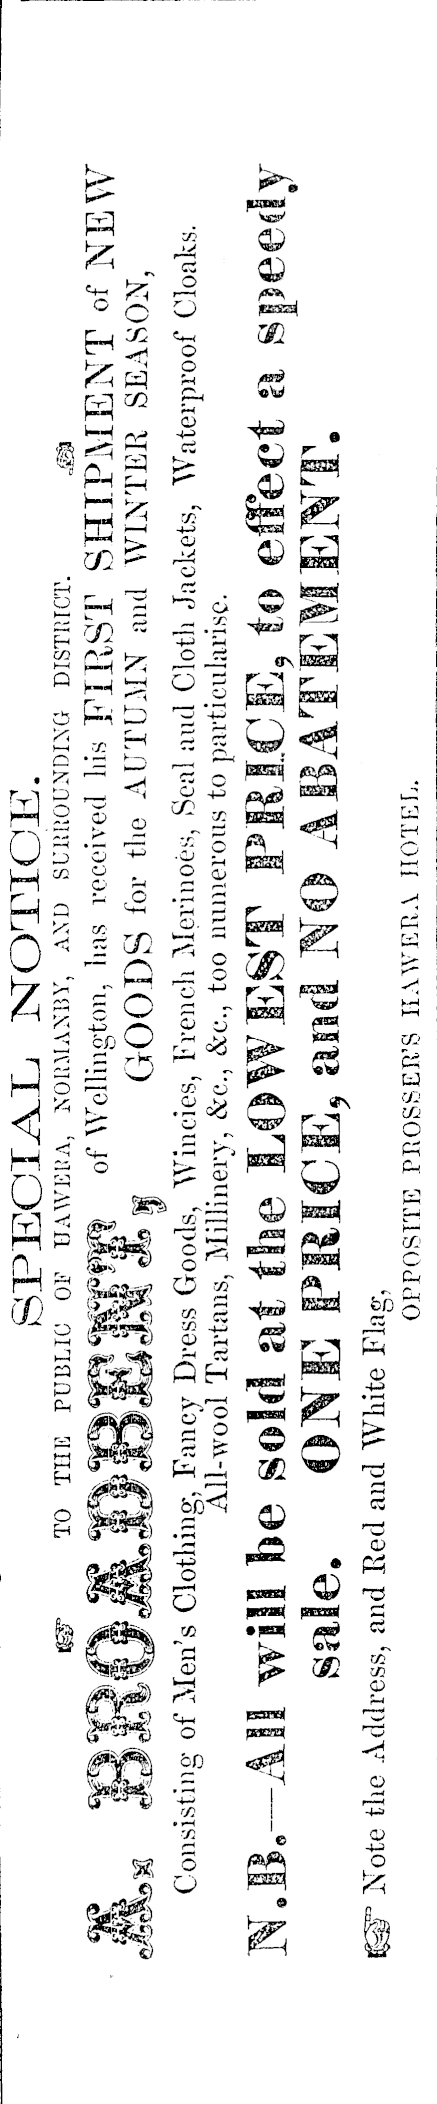 SPECIAL NOTICE.
TO THE PUBLIC OF HAWERA, NORMANBY, AND SURROUNDING DISTRICT.
A. BROADBENT,
of Wellington, has received his FIRST SHIPMENT of NEW
GOODS for the AUTUMN and WINTER SEASON,
Consisting of Men's Clothing, Fancy Dress Goods, Wincies, French Merinoes, Seal and Cloth Jackets, Waterproof Cloaks.
All-wool Tartans, Millinery, &c., &c., too numerous to particularise.
N.B.—All will be sold at the LOWEST PRICE, to effect a speedy
sale. ONE PRICE, and NO ABATEMENT.
☞ Note the Address, and Red and White Flag,
OPPOSITE PROSSER'S HAWERA HOTEL.